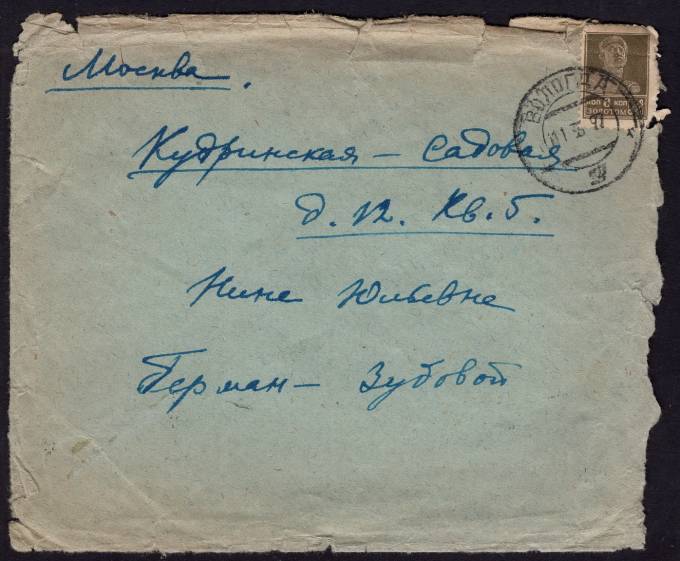 Москва.
Кудринская – Садовая
д. 12. Кв. 5.
Нине Юльевне
Герман – Зубовой
ВОЛОГДА
8 КОП